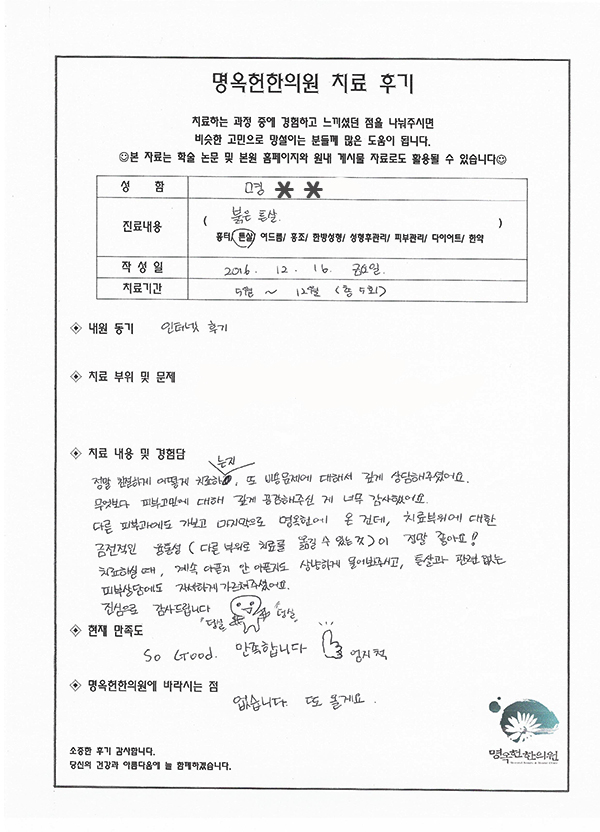 명옥헌한의원 치료 후기
치료하는 과정 중에 경험하고 느끼셨던 점을 나눠주시면
비슷한 고민으로 망설이는 분들께 많은 도움이 됩니다.
☺본 자료는 학술 논문 및 본원 홈페이지와 원내 게시물 자료로도 활용될 수 있습니다☺
성 함 명 * *
진료내용 ( 붉은 튼살. )
흉터/ 튼살/ 여드름/ 홍조/ 한방성형/ 성형후관리/ 피부관리/ 다이어트/ 한약
작 성 일 2016. 12. 16. 금요일.
치료기간 5월 ~ 12월 (총 5회)
◈ 내원 동기 인터넷 후기
◈ 치료 부위 및 문제
◈ 치료 내용 및 경험담
는지
정말 친절하게 어떻게 치료하, 또 비용문제에 대해서 길게 상담해주셨어요.
무엇보다 피부고민에 대해 깊게 공감해주신 게 너무 감사했어요.
다른 피부과에도 가보고 마지막으로 명옥헌에 온 건데, 치료부위에 대한
금전적인 융통성 (다른 부위로 치료를 옮길 수 있는 것)이 정말 좋아요!
치료하실 때, 계속 아픈지 안 아픈지도 상냥하게 물어봐주시고, 튼살과 관련 없는
피부상담에도 자세하게 가르쳐주셨어요.
진심으로 감사드립니다
"덩실 "덩실"
◈ 현재 만족도
So Good. 만족합니다 엄지척
◈ 명옥헌한의원에 바라시는 점
없습니다. 또 올게요.
소중한 후기 감사합니다.
당신의 건강과 아름다움에 늘 함께하겠습니다.
명옥헌한의원